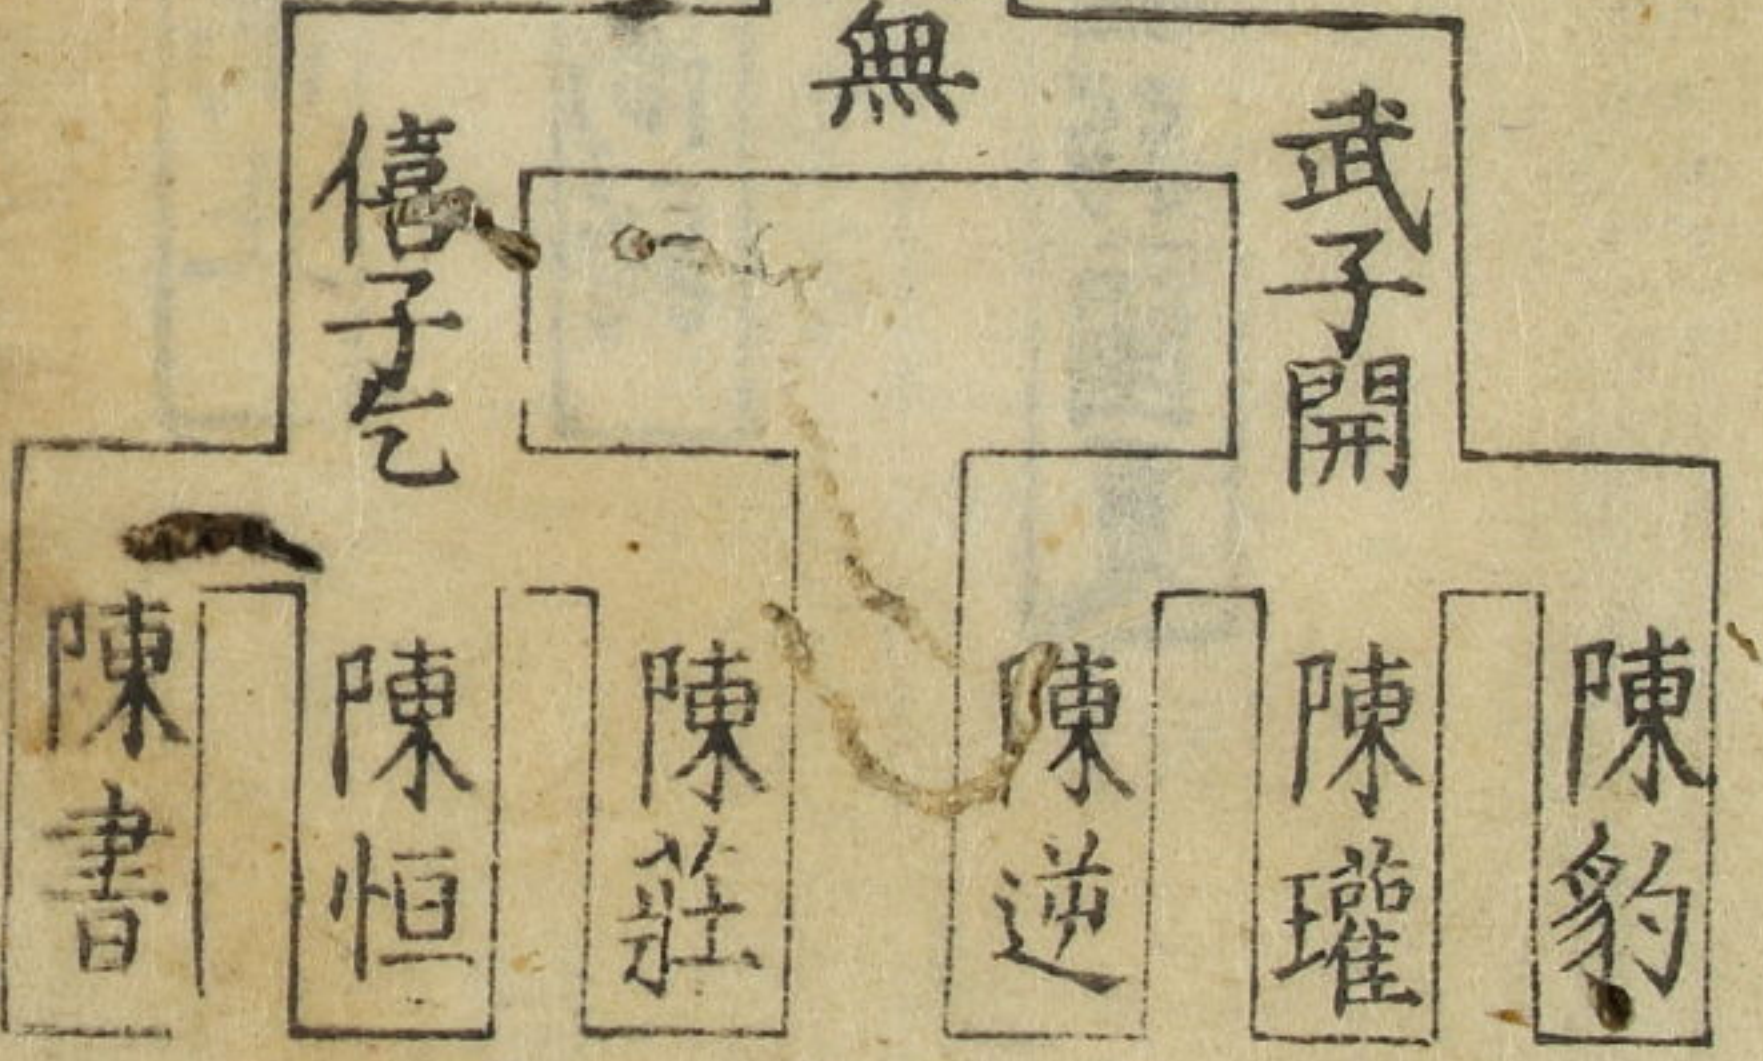 無
武子開
僖子乞
陳豹
陳瓘
陳逆
陳莊
陳恒
陳書